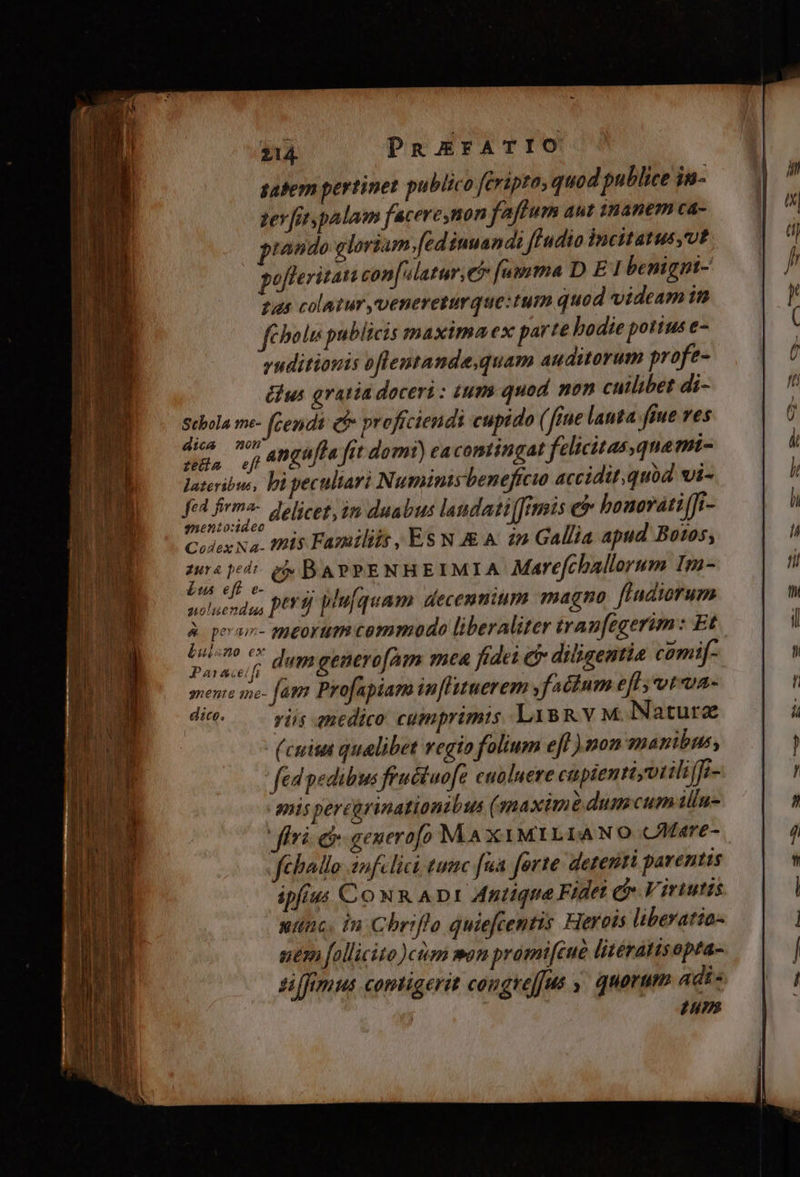 214 PRÆFATIO
tatem pertinet publico scripto, quod publice in-
tersit, palam facere, non fastum aut inanem ca-
ptando gloriam, sed iuuandi studio incitatus, vt
posteritati consulatur, & summa DEI benigni-
tas colatur, venereturque: tum quod videam in
scholis publicis maxima ex parte hodie potius e-
ruditionis ostentandæ, quam auditorum profe-
ctus gratia doceri: tum quod non cuilibet di-
scendi & proficiendi cupido (siue lauta siue res
angusta sit domi) ea contingat felicitas, quæ mi-
hi peculiari Numinis beneficio accidit, quòd vi-
delicet, in duabus laudatissimis & honoratissi-
mis Familiis, ESNÆA in Gallia apud Boios,
& BAPPENHEIMIA Mareschallorum Im-
perij plusquam decennium magno studiorum
meorum commodo liberaliter transegerim: Et
dum generosam mea fidei & diligentia comis-
sam Prosapiam instituerem, factum est, vt va-
riis medico cumprimis LIBRVM Naturæ
(cuius quælibet regio folium est) non manibus,
sed pedibus fructuose euoluere cupienti, vtilissi-
mis peregrinationibus (maximè dum cum illu-
stri & generoso MAXIMILIANO Mare-
schallo infelici tunc sua sorte detenti parentis
ipsius CONRADI Antiqua Fidei & Virtutis
nunc in Christo quiescentis Herois liberatio-
nem sollicito) cùm non promiscuè literatis opta-
tissimus contigerit congressus, quorum adi-
tum
Schola me-
dica non
tecta est
lateribus,
sed firma-
mento: ideo
Codex Na-
turæ pedi-
bus est e-
uoluendus
& peram-
bulano ex
Paracelsi
mente me-
dico.